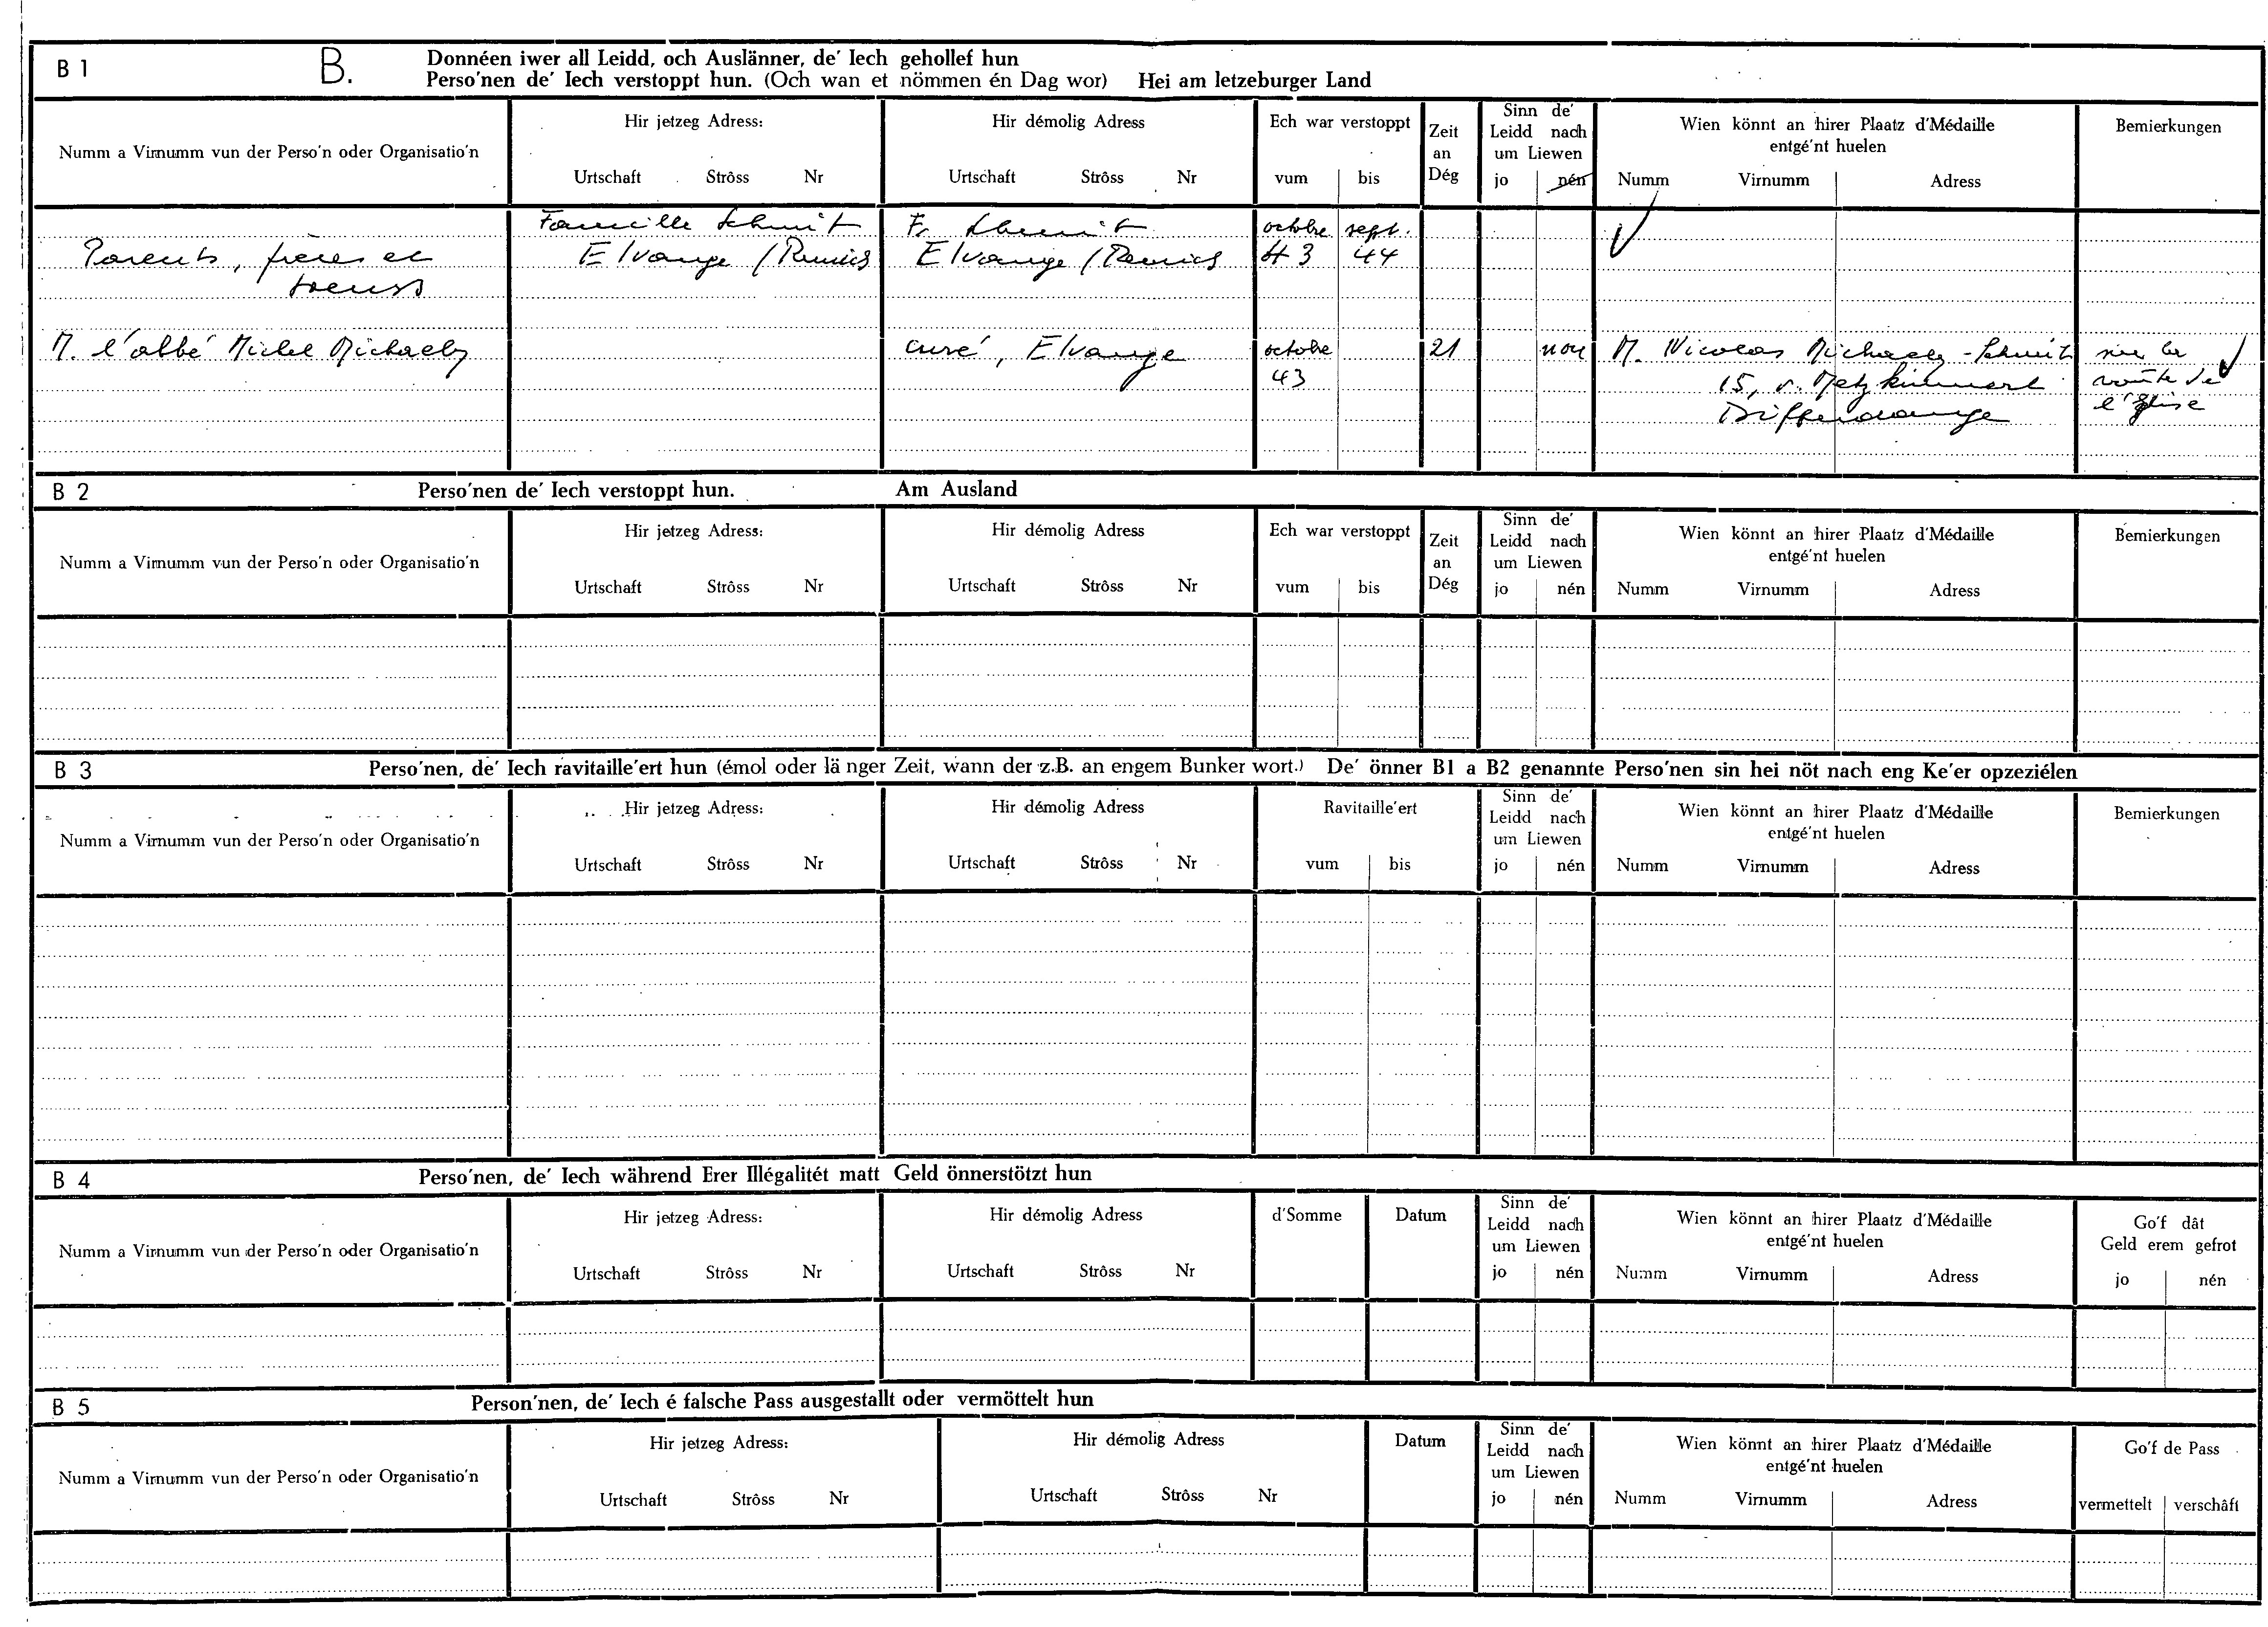 B 1 B. Donnéen iwer all Leidd, och Auslänner, de' Iech gehollef hun
Perso'nen de' Iech verstoppt hun. (Och wan et nömmen én Dag wor) Hei am letzeburger Land
Numm a Virnumm vun der Perso'n oder Organisatio'n
Hir jetzeg Adress:
Urtschaft Strôss Nr
Hir démolig Adress
Urtschaft Strôss Nr
Ech war verstoppt
vum bis
Zeit
an
Dég
Sinn de'
Leidd nach
um Liewen
jo nén
Wien könnt an hirer Plaatz d'Médaille
entgé'nt huelen
Numm Virnumm Adress
Bemierkungen
Famille Schmit Fr. Schmit octobre sept.
Parents, frères et Elvange / Remich Elvange / Remich 43 44
soeurs
M. l'abbé Michel Michaely curé, Elvange octobre 21 non M. Nicolas Michaely-Schmit
43 15, r. Metzkimmert route de
Differdange l'Eglise
B 2 Perso'nen de' Iech verstoppt hun. Am Ausland
Numm a Virnumm vun der Perso'n oder Organisatio'n
Hir jetzeg Adress:
Urtschaft Strôss Nr
Hir démolig Adress
Urtschaft Strôss Nr
Ech war verstoppt
vum bis
Zeit
an
Dég
Sinn de'
Leidd nach
um Liewen
jo nén
Wien könnt an hirer Plaatz d'Médaille
entgé'nt huelen
Numm Virnumm Adress
Bemierkungen
B 3 Perso'nen, de' Iech ravitaille'ert hun (émol oder länger Zeit, wann der z.B. an engem Bunker wort.) De' önner B1 a B2 genannte Perso'nen sin hei nöt nach eng Ke'er opzeziélen
Numm a Virnumm vun der Perso'n oder Organisatio'n
Hir jetzeg Adress:
Urtschaft Strôss Nr
Hir démolig Adress
Urtschaft Strôss Nr
Ravitaille'ert
vum bis
Sinn de'
Leidd nach
um Liewen
jo nén
Wien könnt an hirer Plaatz d'Médaille
entgé'nt huelen
Numm Virnumm Adress
Bemierkungen
B 4 Perso'nen, de' Iech während Erer Illégalitét matt Geld önnerstötzt hun
Numm a Virnumm vun der Perso'n oder Organisatio'n
Hir jetzeg Adress:
Urtschaft Strôss Nr
Hir démolig Adress
Urtschaft Strôss Nr
d'Somme
Datum
Sinn de'
Leidd nach
um Liewen
jo nén
Wien könnt an hirer Plaatz d'Médaille
entgé'nt huelen
Numm Virnumm Adress
Go'f dât
Geld erem gefrot
jo nén
B 5 Person'nen, de' Iech é falsche Pass ausgestallt oder vermöttelt hun
Numm a Virnumm vun der Perso'n oder Organisatio'n
Hir jetzeg Adress:
Urtschaft Strôss Nr
Hir démolig Adress
Urtschaft Strôss Nr
Datum
Sinn de'
Leidd nach
um Liewen
jo nén
Wien könnt an hirer Plaatz d'Médaille
entgé'nt huelen
Numm Virnumm Adress
Go'f de Pass
vermettelt verschâft